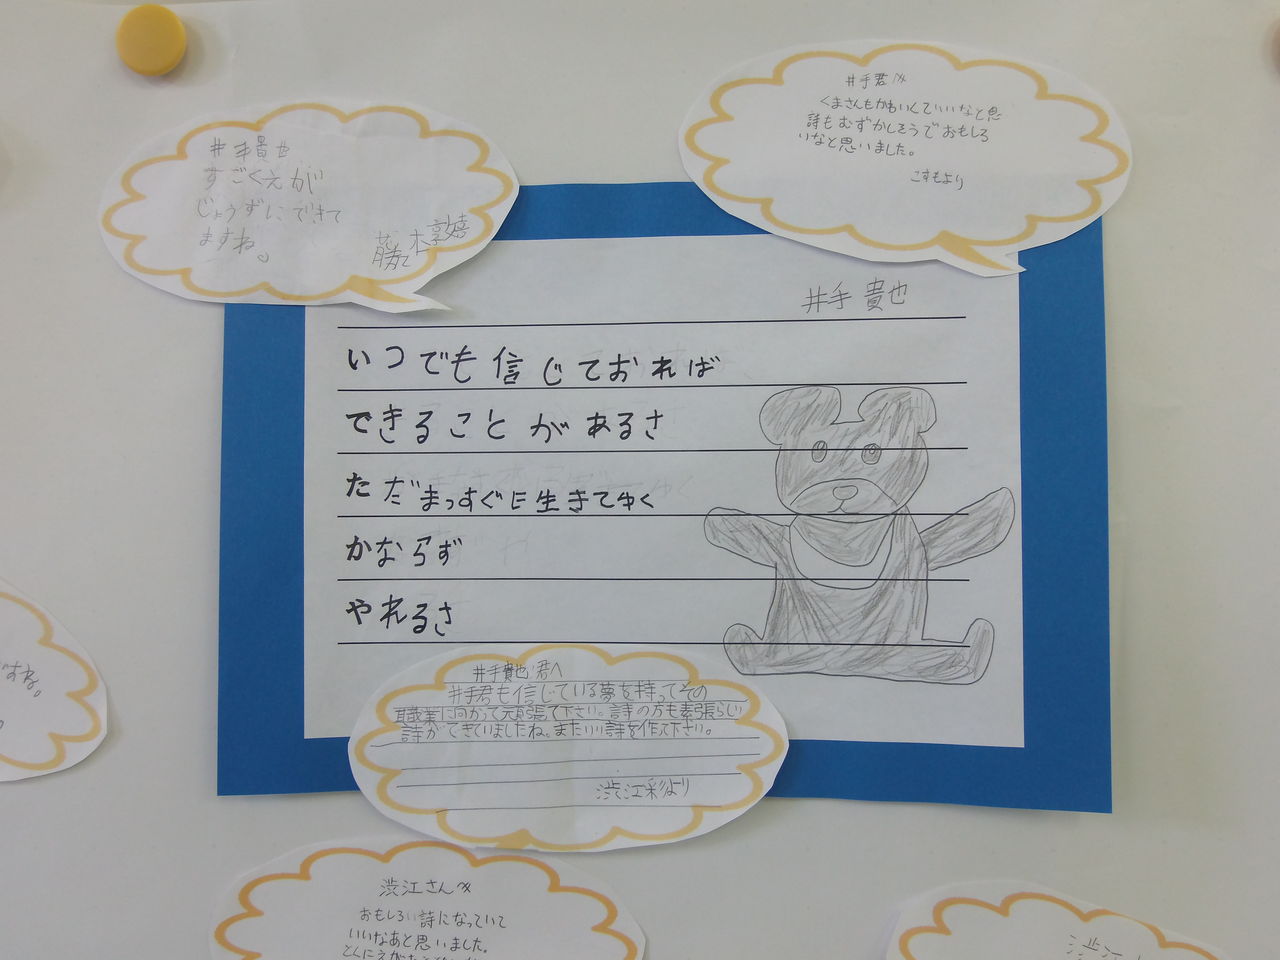 井手貴也
すごくえが
じょうずにできて
ますね。
藤木
井手君へ
くまさんもかわいくていいなと思
詩もむずかしそうでおもしろ
いなと思いました。
こすもより
井手 貴也
いつでも信じておれば
できることがあるさ
ただまっすぐに生きてゆく
かならず
やれるさ
井手貴也君へ
井手君も信じている夢を持ってその
職業に向かって元頑張て下さい。詩の方も素張らしい
詩ができていましたね。またいい詩を作て下さい。
渋江彩より
すね。
渋江さんへ
おもしろい詩になっていて
いいなあと思いました。
渋江